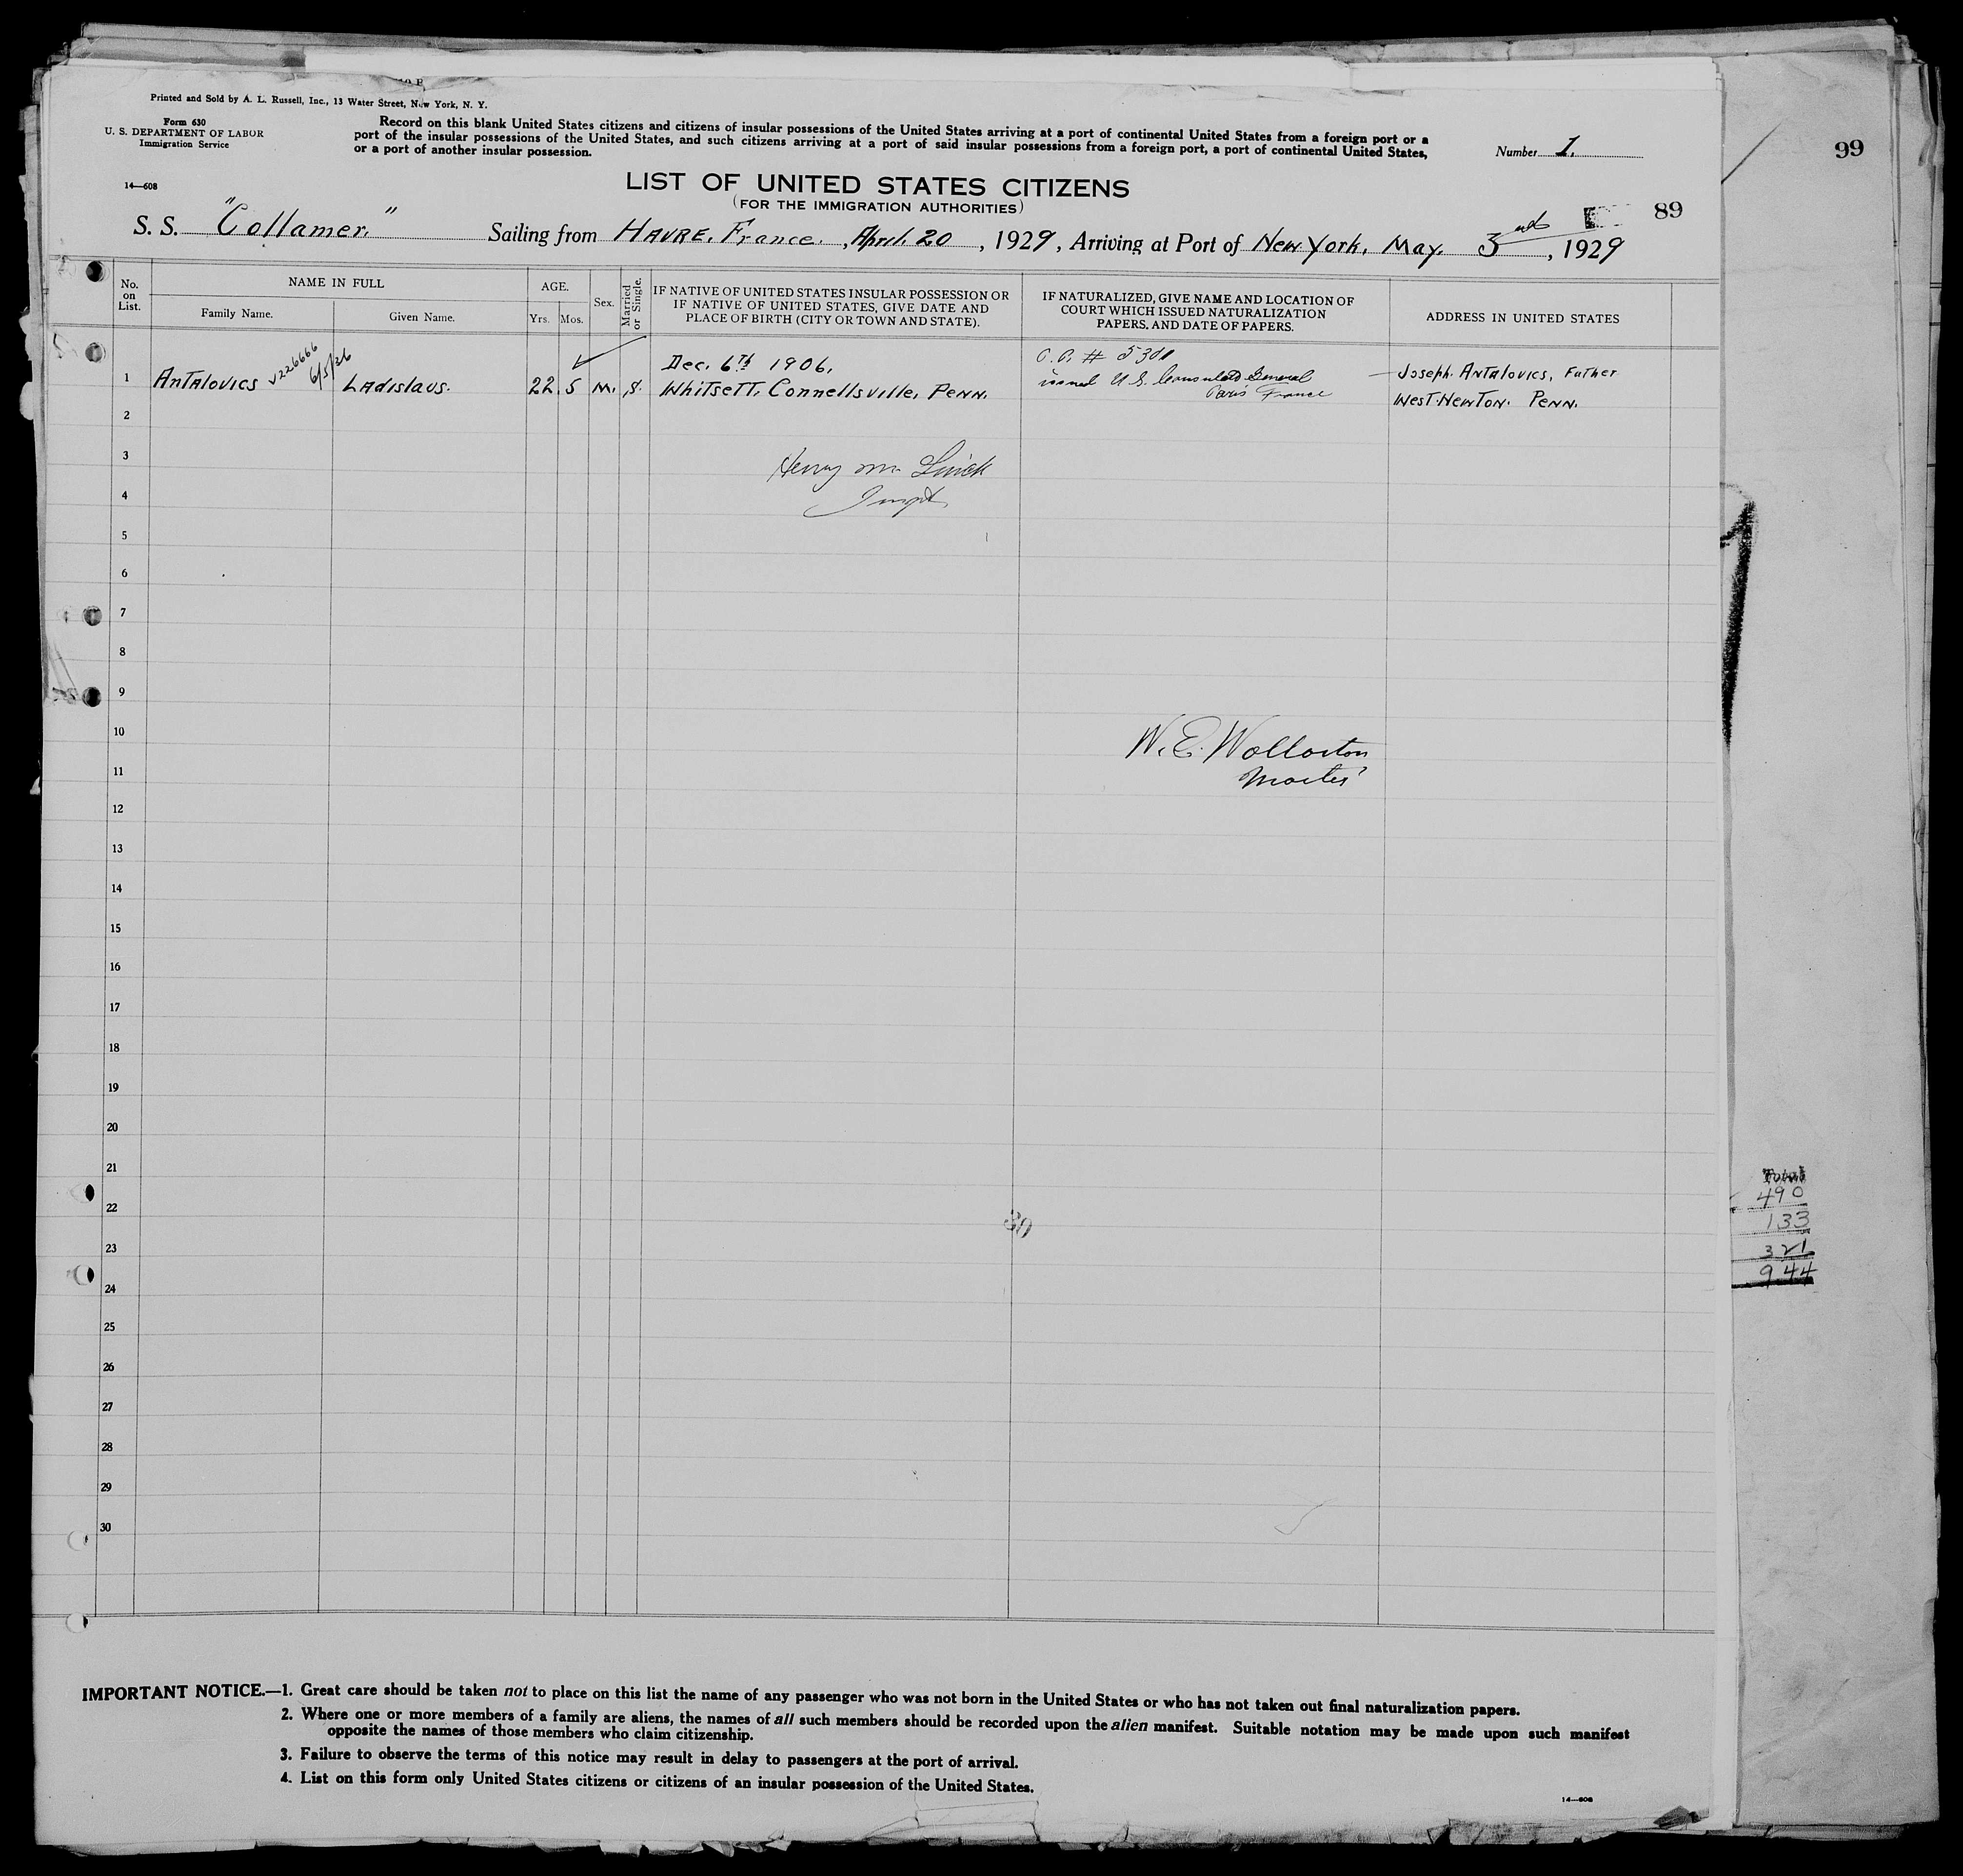 Printed and Sold by A. L. Russell, Inc., 13 Water Street, New York, N. Y.
Form 630
U. S. DEPARTMENT OF LABOR
Immigration Service
14—608
Record on this blank United States citizens and citizens of insular possessions of the United States arriving at a port of continental United States from a foreign port or a
port of the insular possessions of the United States, and such citizens arriving at a port of said insular possessions from a foreign port, a port of continental United States,
or a port of another insular possession.
Number 1.
99
LIST OF UNITED STATES CITIZENS
(FOR THE IMMIGRATION AUTHORITIES)
89
S. S. "Collamer." Sailing from HAVRE, France, April 20, 1929, Arriving at Port of New York, May 3, 1929
No. on List.
NAME IN FULL
Family Name.
Given Name.
AGE.
Yrs. Mos.
Sex.
Married or Single.
IF NATIVE OF UNITED STATES INSULAR POSSESSION OR
IF NATIVE OF UNITED STATES, GIVE DATE AND
PLACE OF BIRTH (CITY OR TOWN AND STATE).
IF NATURALIZED, GIVE NAME AND LOCATION OF
COURT WHICH ISSUED NATURALIZATION
PAPERS, AND DATE OF PAPERS.
ADDRESS IN UNITED STATES
V226666
6/5/36
Dec. 6th 1906.
1 Antalovics Ladislaus. 22 5 M. S. Whitsett, Connellsville, Penn.
issued U.S. Consulate General
Paris France
Joseph Antalovics, Father
West Newton. Penn.
2
3
Henry
4
Inspt
5
6
7
8
9
10
W. E. Wollaston
11
Master
12
13
14
15
16
17
18
19
20
21
22
23
24
25
26
27
28
29
30
Total
490
133
321
944
IMPORTANT NOTICE.—1. Great care should be taken not to place on this list the name of any passenger who was not born in the United States or who has not taken out final naturalization papers.
2. Where one or more members of a family are aliens, the names of all such members should be recorded upon the alien manifest. Suitable notation may be made upon such manifest
opposite the names of those members who claim citizenship.
3. Failure to observe the terms of this notice may result in delay to passengers at the port of arrival.
4. List on this form only United States citizens or citizens of an insular possession of the United States.
14—608